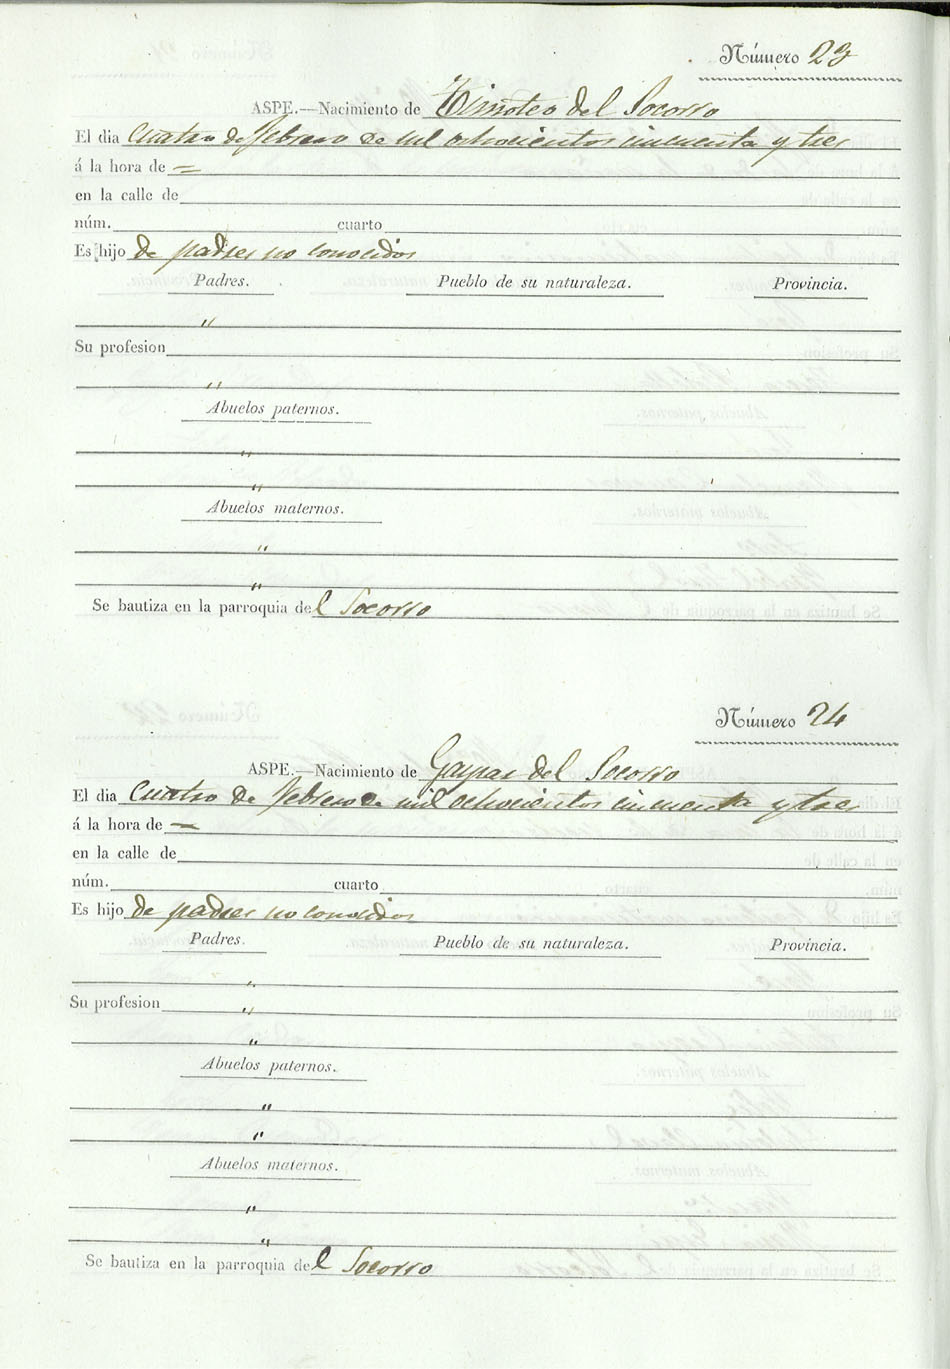 Número 23
ASPE.—Nacimiento de Timoteo del Socorro
El dia Cuatro de febrero de mil ochocientos cincuenta y tres
á la hora de =
en la calle de
núm. cuarto
Es hijo de padres no conocidos
Padres. Pueblo de su naturaleza. Provincia.
"
Su profesion
"
Abuelos paternos.
"
"
Abuelos maternos.
"
"
Se bautiza en la parroquia del Socorro
Número 24
ASPE.—Nacimiento de Gaspar del Socorro
El dia Cuatro de febrero de mil ochocientos cincuenta y tres
á la hora de =
en la calle de
núm. cuarto
Es hijo de padres no conocidos
Padres. Pueblo de su naturaleza. Provincia.
"
Su profesion "
"
Abuelos paternos.
"
"
Abuelos maternos.
"
"
Se bautiza en la parroquia del Socorro